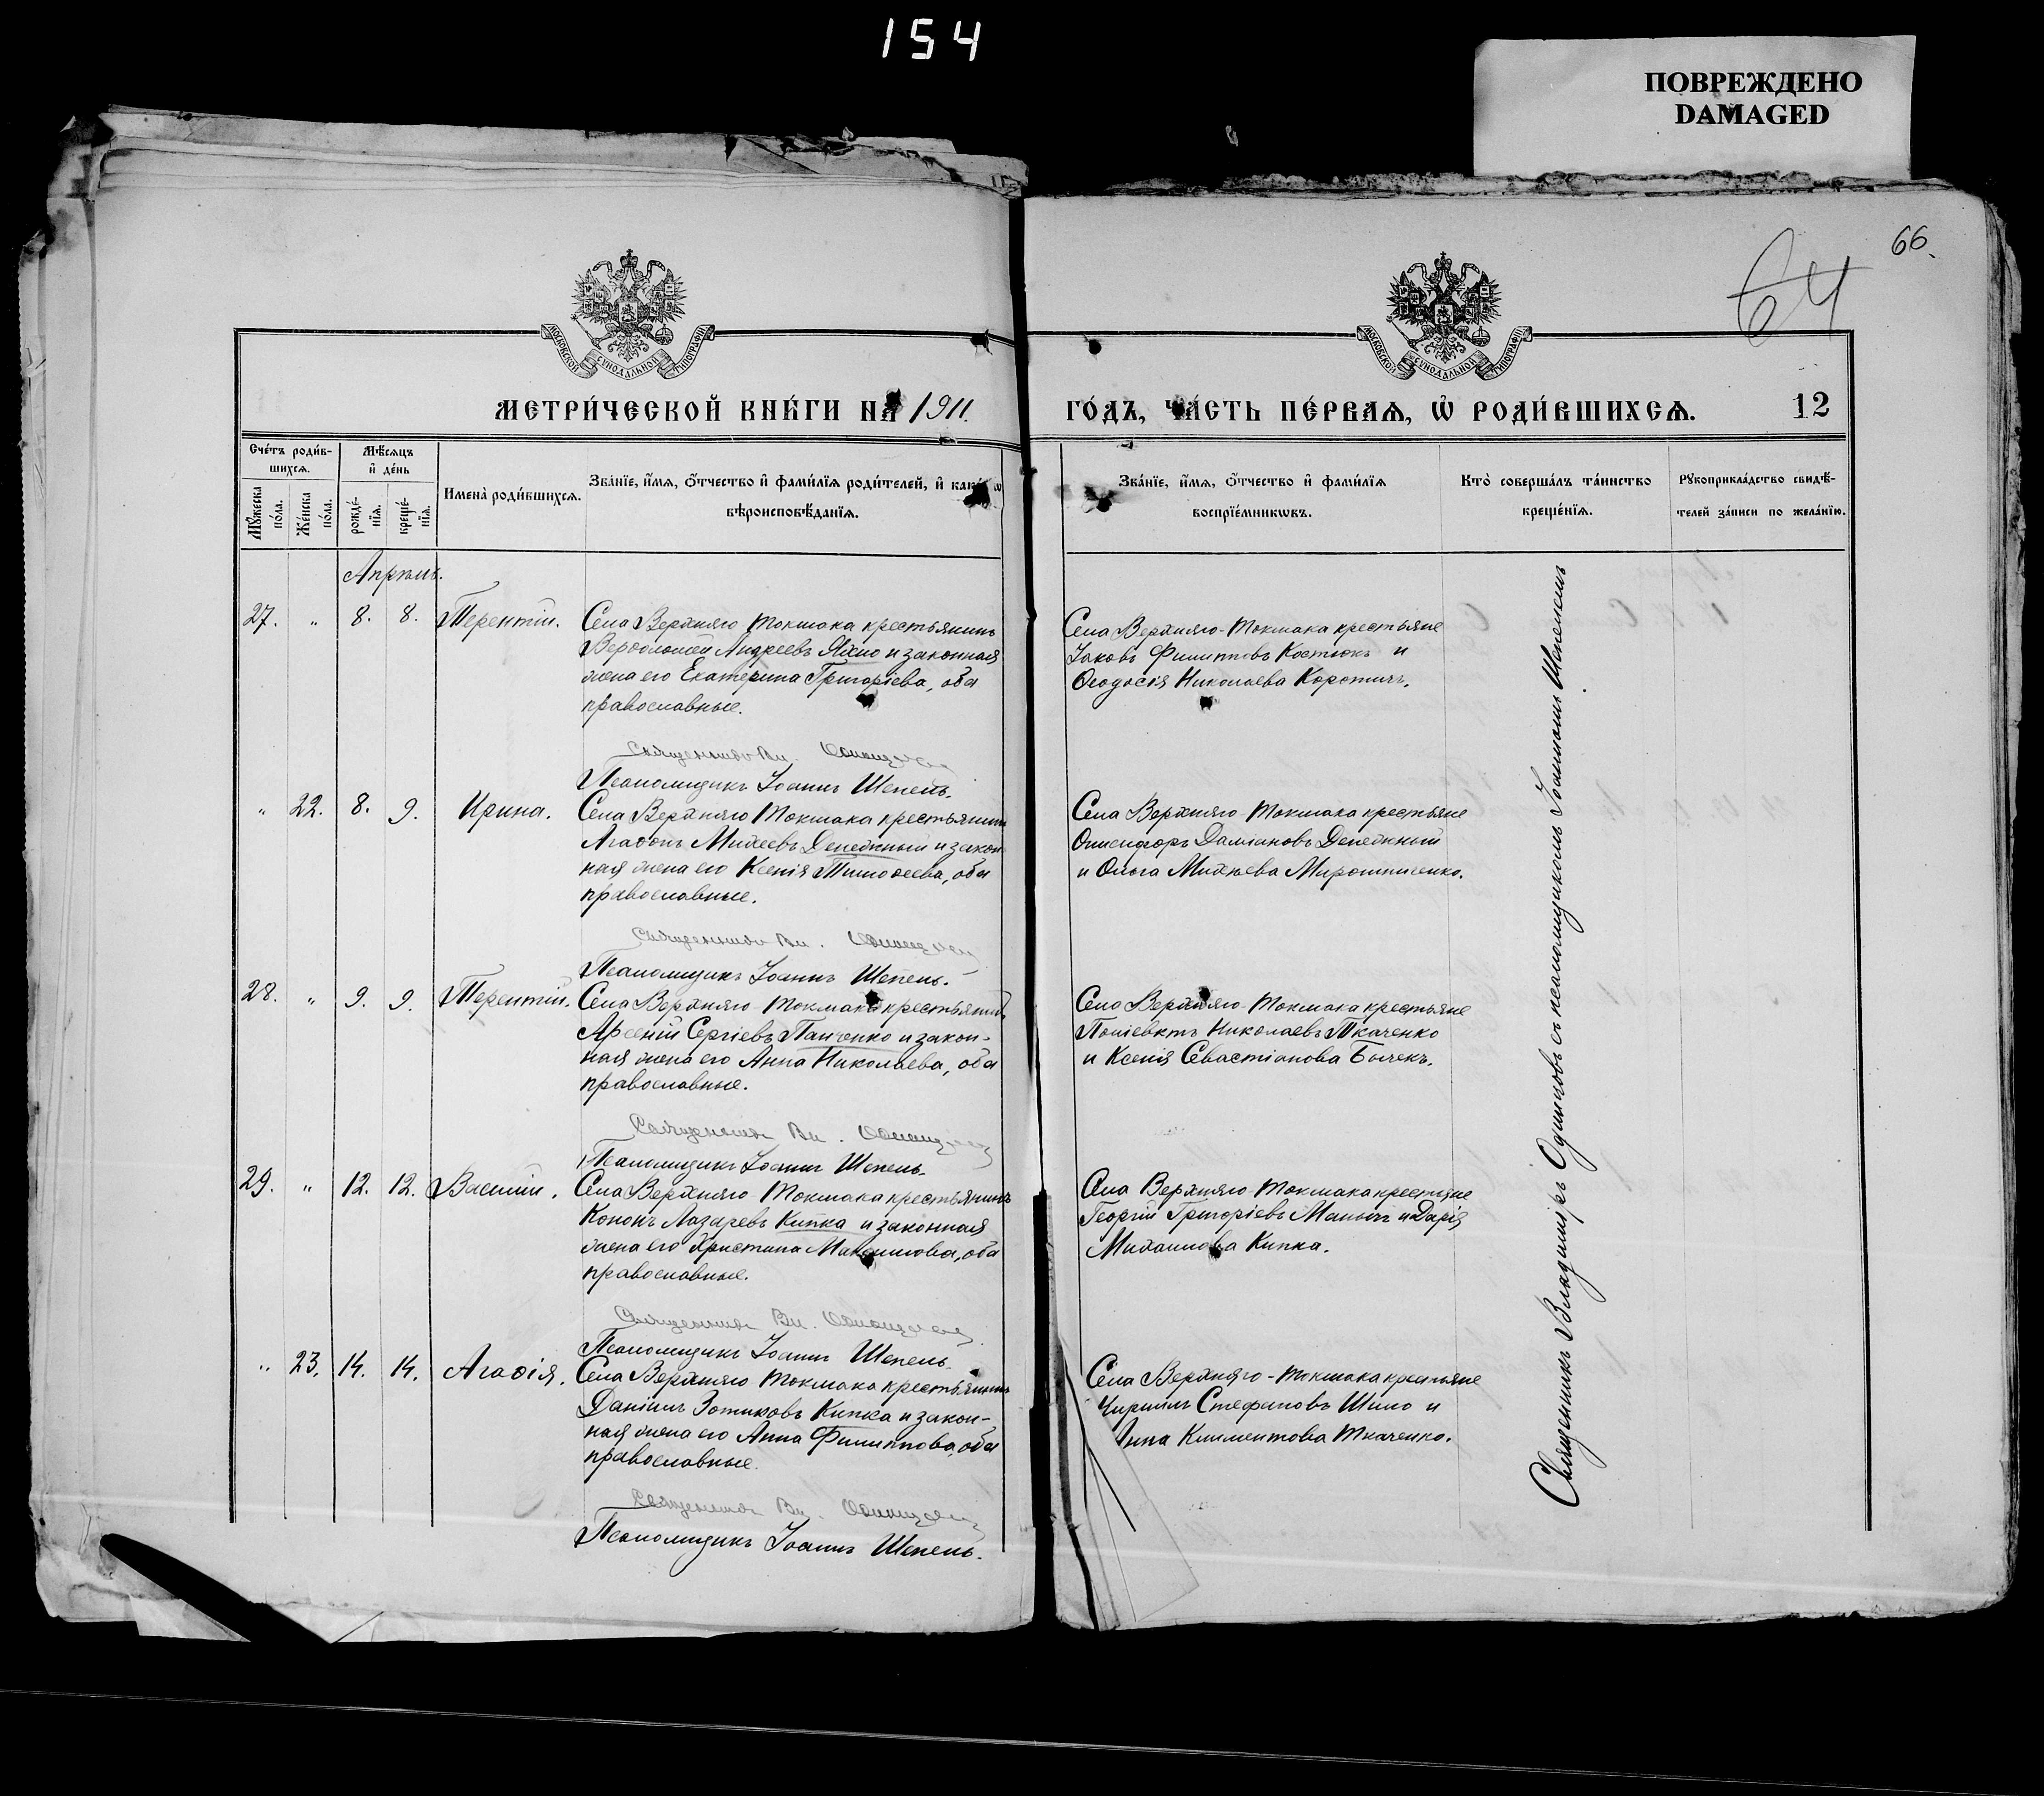 154
ПОВРЕЖДЕНО
DAMAGED
66.
64
МОСКОВСКОЙ СѴНОДАЛЬНОЙ ТИПОГРАФІИ
МОСКОВСКОЙ СѴНОДАЛЬНОЙ ТИПОГРАФІИ
МЕТРИ́ЧЕСКОЙ КНИ́ГИ НА 1911.
ГО́ДЪ, ЧА́СТЬ ПЕ́РВАЯ, Ѡ РОДИ́ВШИХСЯ. 12
Сче́тъ роди́в-
шихся.
Мѣ́сяцъ
и де́нь
Мꙋ́жеска по́ла.
Же́нска по́ла.
рожде́-
нїя.
креще́-
нїя.
Имена̀ роди́вшихся.
Зва́нїе, и́мя, ѻ́тчество и фами́лїя роди́телей, и како́гѡ
вѣроисповѣ́данїя.
Зва́нїе, и́мя, ѻ́тчество и фами́лїя
воспрїе́мникѡвъ.
Кто̀ соверша́лъ та́инство
креще́нїя.
Рꙋкоприкла́дство свидѣ́-
телей за́писи по жела́нїю.
Апрѣль.
27. " 8. 8. Терентій. Села Верхняго Токмака крестьянинъ
Верѳоломей Андреевъ Яхно и законная
жена его Екатерина Григоріева, оба
православные.
Священникъ Вл. Одинцовъ
Псаломщикъ Іоаннъ Шепень.
Села Верхняго-Токмака крестьяне
Іаковъ Филипповъ Костюкъ и
Ѳеодосія Николаева Коротичъ.
" 22. 8. 9. Ирина. Села Верхняго Токмака крестьянинъ
Агаѳонъ Михеевъ Денежный и закон
ная жена его Ксенія Тимоѳеева, оба
православные.
Священникъ Вл. Одинцовъ
Псаломщикъ Іоаннъ Шепень.
Села Верхняго-Токмака крестьяне
Онисифоръ Даміановъ Денежный
и Ольга Михѣева Мирошниченко.
28. " 9. 9. Терентій. Села Верхняго Токмака крестьянинъ
Арсеній Сергіевъ Панченко и закон-
ная жена его Анна Николаева, оба
православные.
Священникъ Вл. Одинцовъ
Псаломщикъ Іоаннъ Шепень.
Села Верхняго-Токмака крестьяне
Поліевктъ Николаевъ Ткаченко
и Ксенія Севастіанова Бычекъ.
29. " 12. 12. Василій. Села Верхняго-Токмака крестьянинъ
Кононъ Лазаревъ Кипка и законная
жена его Христина Максимова, оба
православные.
Священникъ Вл. Одинцовъ
Псаломщикъ Іоаннъ Шепень
Села Верхняго-Токмака крестьяне
Георгій Григоріевъ и Дарія
Михаилова Кипка.
" 23. 14. 14. Агаѳія. Села Верхняго Токмака крестьянинъ
Даніилъ Зотиковъ Кипка и закон-
ная жена его Анна Филиппова, оба
православные.
Священникъ Вл. Одинцовъ
Псаломщикъ Іоаннъ Шепень.
Села Верхняго-Токмака крестьяне
Кириллъ Стефановъ Шило и
Анна Климентова Ткаченко.
Священникъ Владиміръ Одинцовъ съ псаломщикомъ Іоанномъ Шепенемъ